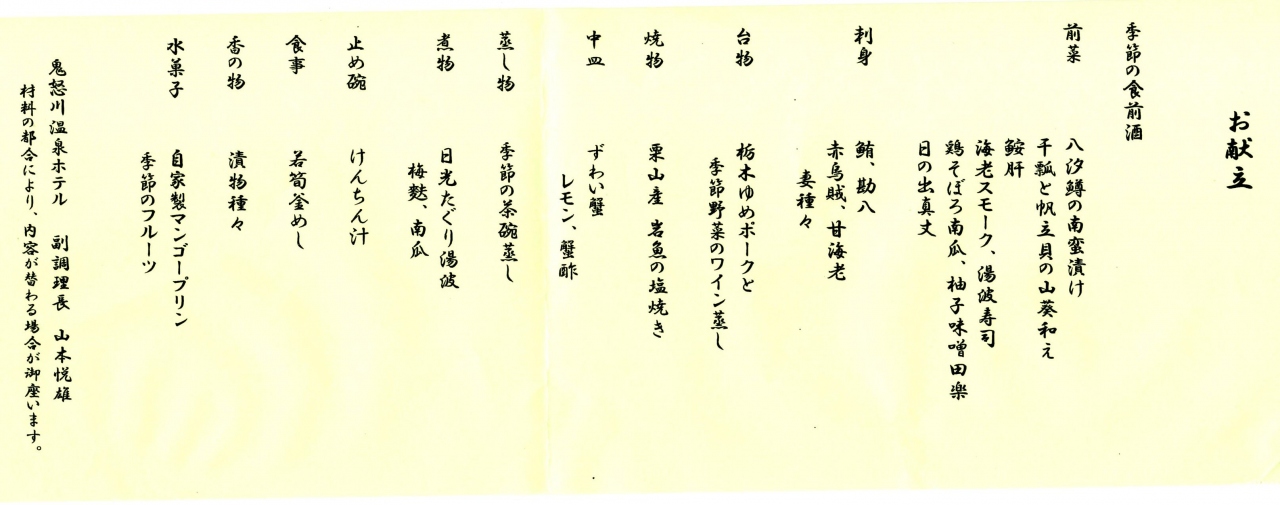 お献立
季節の食前酒
前菜
八汐鱒の南蛮漬け
干瓢と帆立貝の山葵和え
鮟肝
海老スモーク、湯波寿司
鶏そぼろ南瓜、柚子味噌田楽
日の出真丈
刺身
鮪、勘八
赤烏賊、甘海老
妻種々
台物
栃木ゆめポークと
季節野菜のワイン蒸し
焼物
栗山産 岩魚の塩焼き
中皿
ずわい蟹
レモン、蟹酢
蒸し物
季節の茶碗蒸し
煮物
日光たぐり湯波
梅麩、南瓜
止め碗
けんちん汁
食事
若筍釜めし
香の物
漬物種々
水菓子
自家製マンゴープリン
季節のフルーツ
鬼怒川温泉ホテル 副調理長 山本悦雄
材料の都合により、内容が替わる場合が御座います。